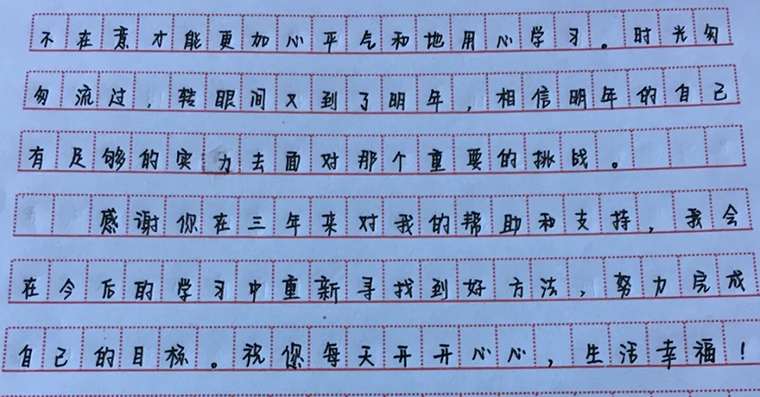 不在意才能更加心平气和地用心学习。时光匆
匆流过，转眼间又到了明年，相信明年的自己
有足够的实力去面对那个重要的挑战。
感谢你在三年来对我的帮助和支持，我会
在今后的学习中重新寻找到好方法，努力完成
自己的目标。祝您每天开开心心，生活幸福！